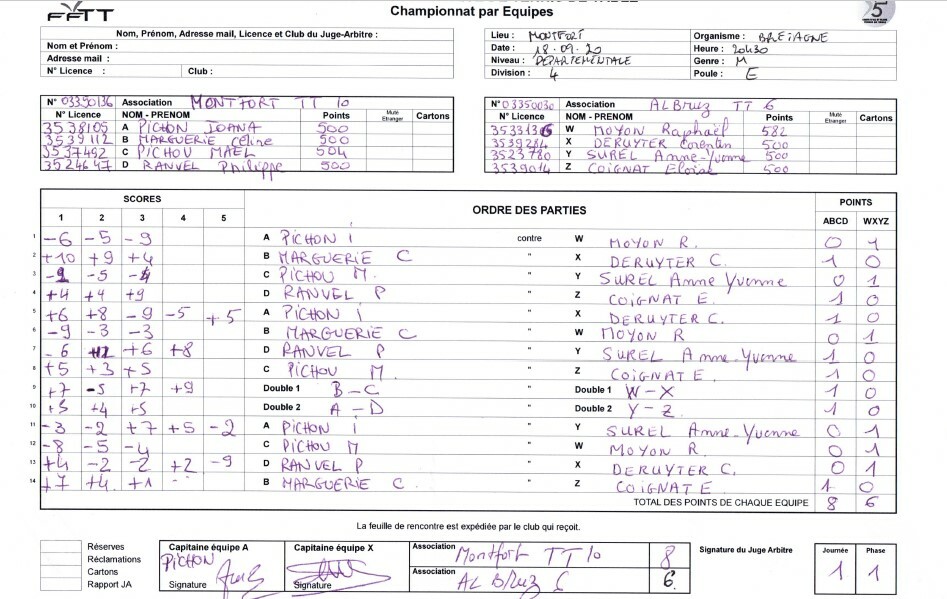 FFTT
Championnat par Equipes
Nom, Prénom, Adresse mail, Licence et Club du Juge-Arbitre :
Nom et Prénom :
Adresse mail :
N° Licence : Club :
Lieu : MONTFORT Organisme : BRETAGNE
Date : 18.09.20 Heure : 20h30
Niveau : DEPARTEMENTALE Genre : M
Division : 4 Poule : E
N° 03350136 Association MONTFORT TT 10
N° Licence NOM - PRENOM Points Muté Etranger Cartons
3538105 A PICHON IOANA 500
3539112 B MARGUERIE Céline 500
3537492 C PICHOU MAEL 504
3524647 D RANVEL Philippe 500
N° 03350030 Association AL BRUZ TT 6
N° Licence NOM - PRENOM Points Muté Etranger Cartons
3533136 W MOYON Raphaël 582
3539284 X DERUYTER Corentin 500
3523780 Y SUREL Anne-Yvonne 500
3539014 Z COIGNAT Eloise 500
SCORES ORDRE DES PARTIES POINTS
1 2 3 4 5 ABCD WXYZ
1 -6 -5 -9 A PICHON I contre W MOYON R. 0 1
2 +10 +9 +4 B MARGUERIE C " X DERUYTER C. 1 0
3 -5 C PICHOU M. " Y SUREL Anne Yvonne 0 1
4 +4 +4 +9 D RANVEL P " Z COIGNAT E. 1 0
5 +6 +8 -9 -5 +5 A PICHON I " X DERUYTER C. 1 0
6 -9 -3 -3 B MARGUERIE C " W MOYON R 0 1
7 -6 +6 +8 D RANVEL P " Y SUREL Anne-Yvonne 1 0
8 +5 +3 +5 C PICHOU M. " Z COIGNAT E. 1 0
9 +7 -5 +7 +9 Double 1 B-C " Double 1 W-X 1 0
10 +5 +4 +5 Double 2 A-D " Double 2 Y-Z. 1 0
11 -3 -2 +7 +5 -2 A PICHON I " Y SUREL Anne-Yvonne 0 1
12 -8 -5 -4 C PICHOU M " W MOYON R. 0 1
13 +4 -2 -2 +2 -9 D RANVEL P " X DERUYTER C. 0 1
14 +7 +4 +1 B MARGUERIE C. " Z COIGNAT E 1 0
TOTAL DES POINTS DE CHAQUE EQUIPE 8 6
La feuille de rencontre est expédiée par le club qui reçoit.
Réserves
Réclamations
Cartons
Rapport JA
Capitaine équipe A
PICHON
Signature
Capitaine équipe X
Signature
Association Montfort TT 10 8
Association AL Bruz 6
Signature du Juge Arbitre
Journée Phase
1 1